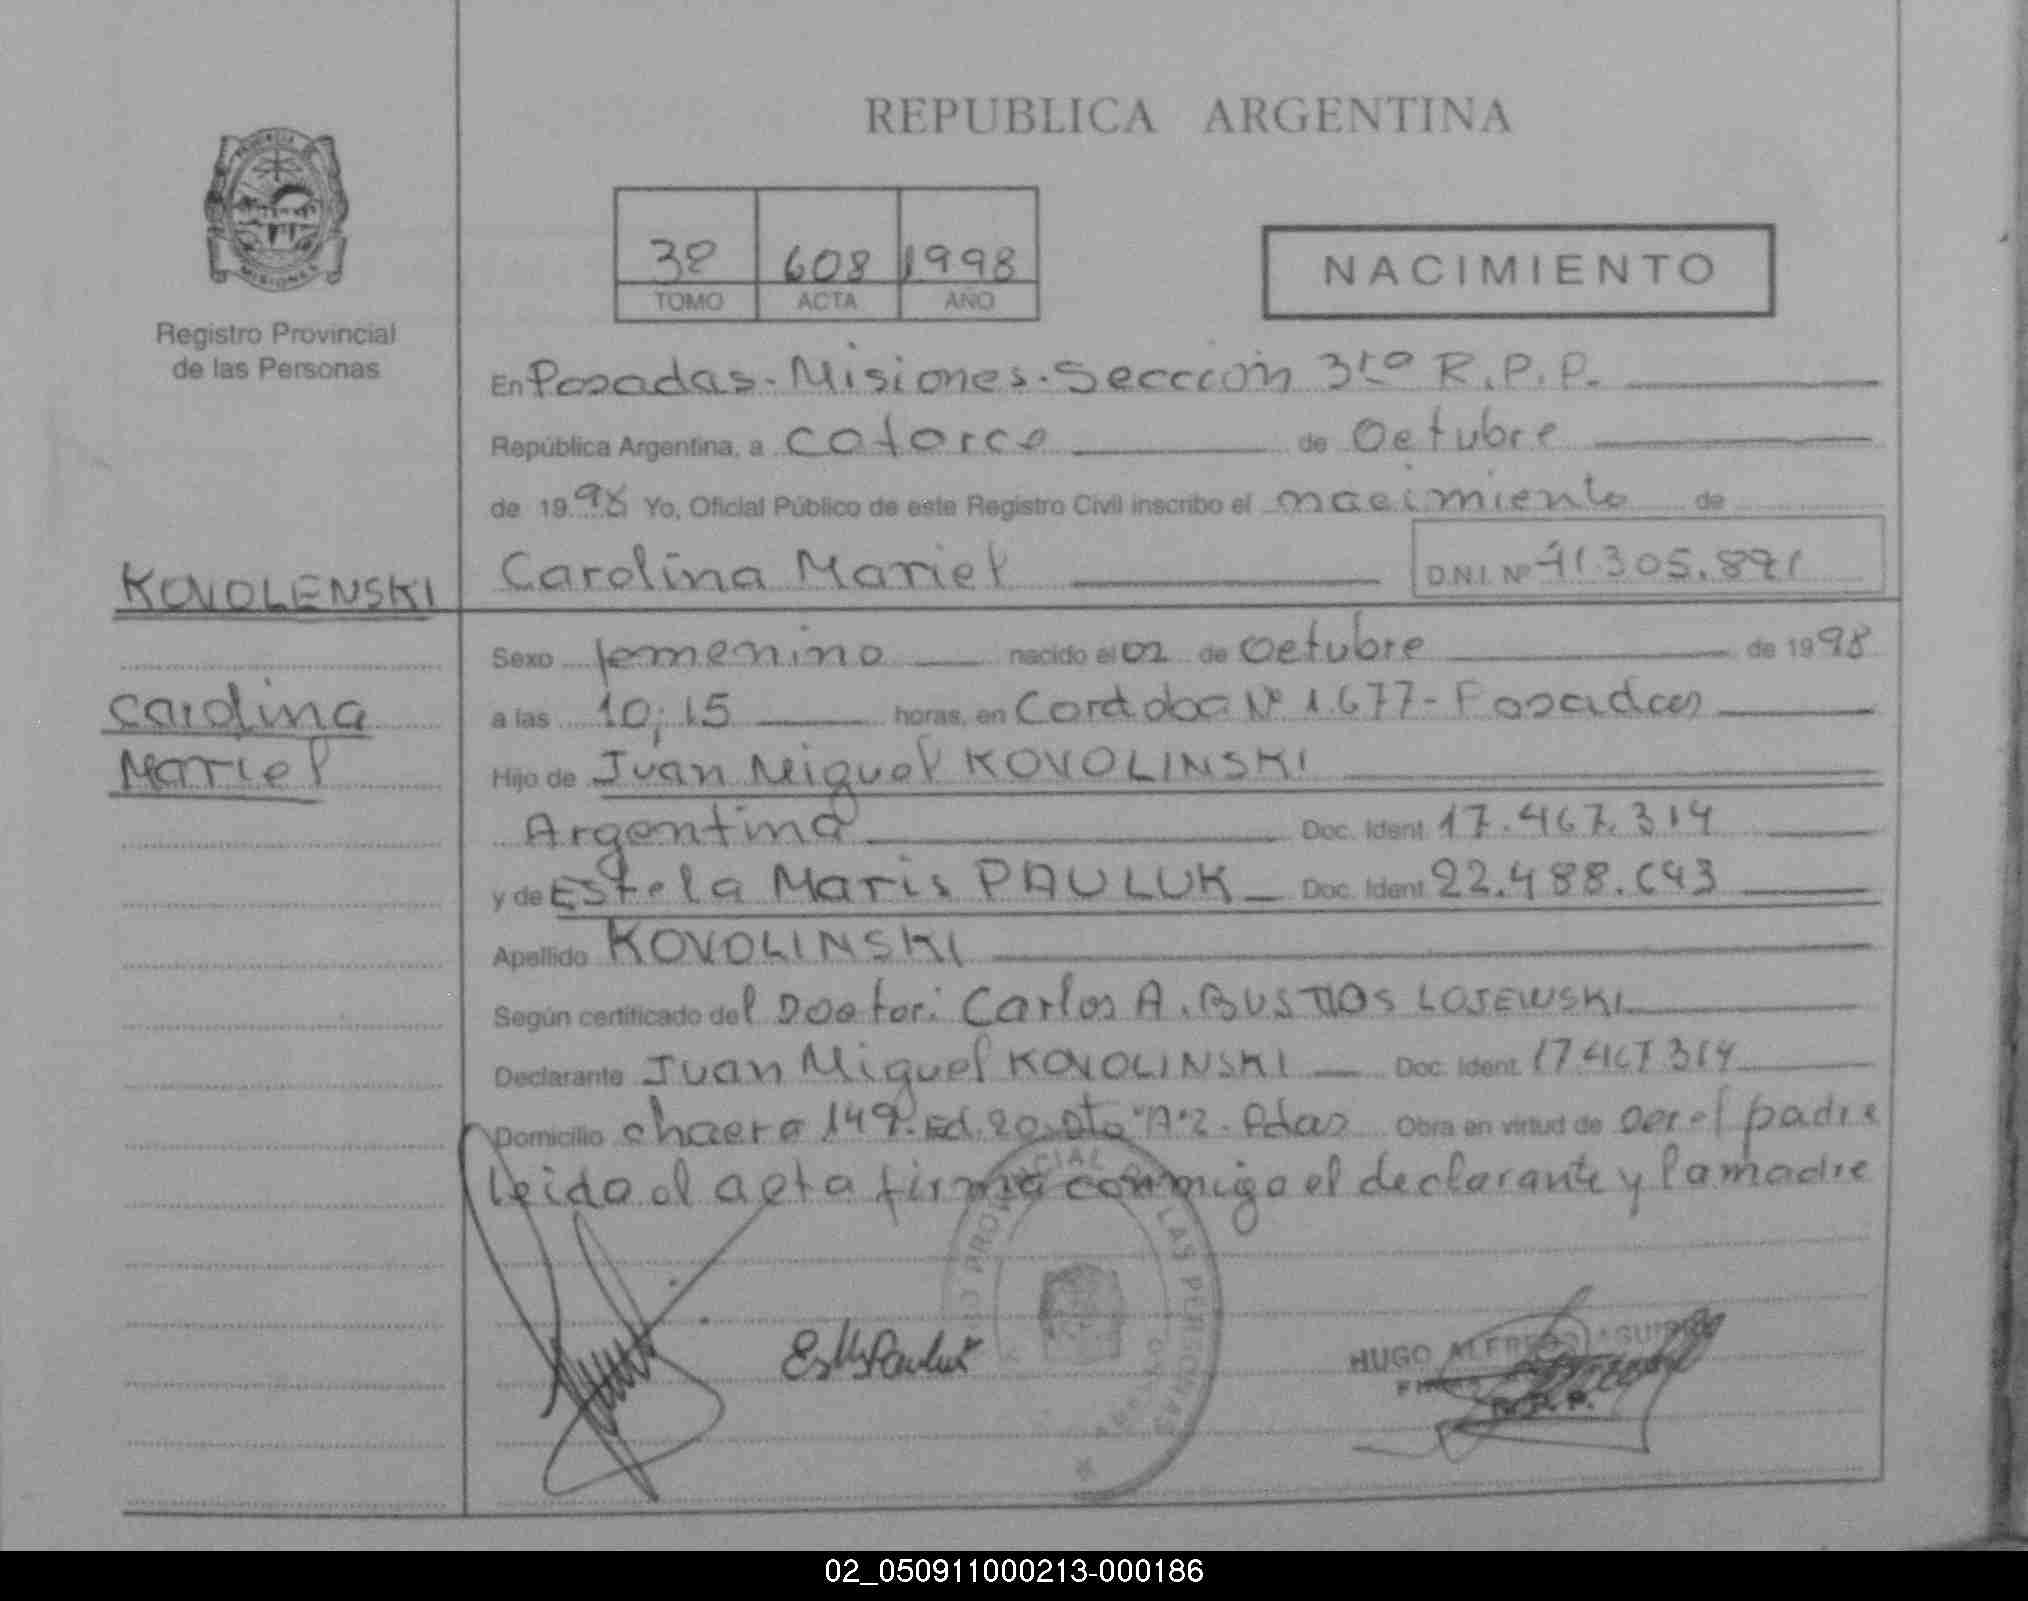 REPUBLICA ARGENTINA
PROVINCIA DE MISIONES
Registro Provincial
de las Personas
3º 608 1998
TOMO ACTA AÑO
NACIMIENTO
En Posadas. Misiones. Seccción 3ra R.P.P.
República Argentina, a catorce de Octubre
de 1998 Yo, Oficial Público de este Registro Civil inscribo el nacimiento de
Carolina Mariel D.N.I. Nº 41.305.891
KOVOLENSKI
Carolina
Mariel
Sexo femenino nacido el 02 de Octubre de 1998
a las 10,15 horas, en Cordoba Nº 1.677- Posadas
Hijo de Juan Miguel KOVOLINSKI
Argentina Doc. Ident. 17.467.314
y de Estela Maris PAULUK Doc. Ident. 22.488.643
Apellido KOVOLINSKI
Según certificado del Doctor: Carlos A. BUSTTOS LOJEWSKI
Declarante Juan Miguel KOVOLINSKI Doc. Ident. 17.467.314
Domicilio chacra 149. Ed. 20. Dto "A"2 - Pdas Obra en virtud de ser el padre
leido el acta firma conmigo el declarante y la madre
PROVINCIAL DE LAS PERSONAS
HUGO ALFREDO
R.P.P.
02_050911000213-000186